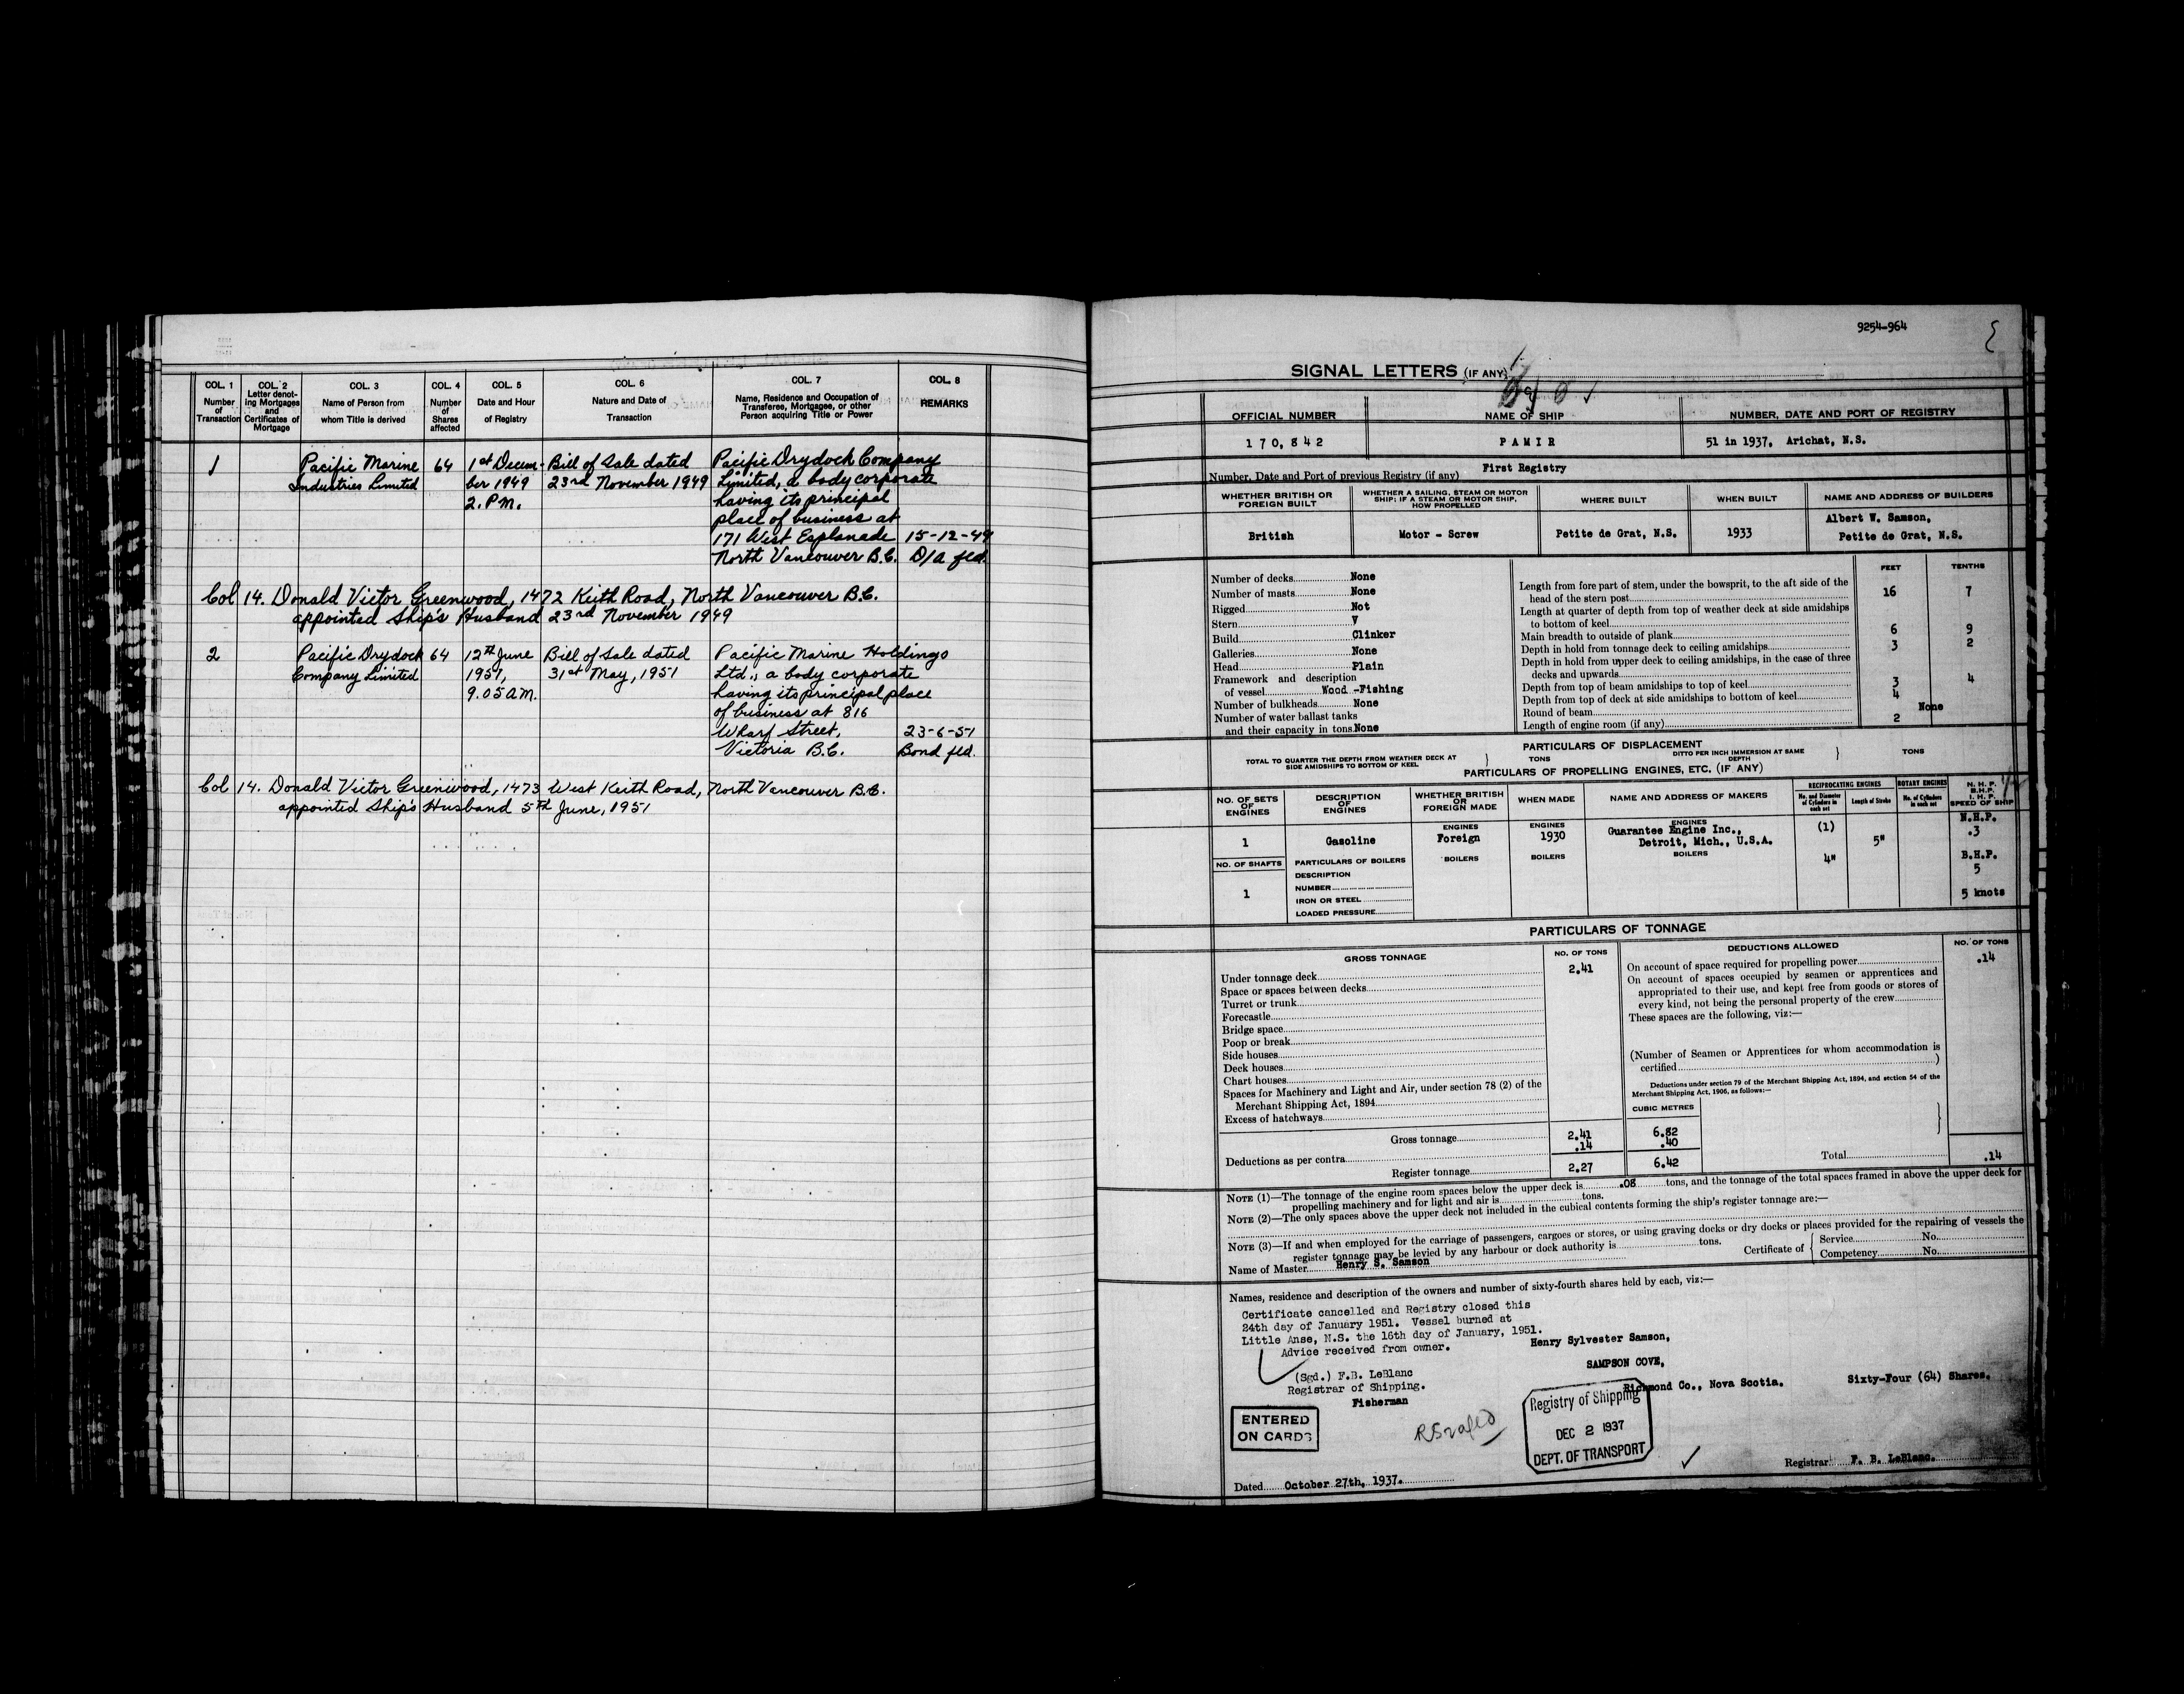 COL. 1
Number
of
Transaction
COL. 2
Letter denot-
ing Mortgages
and
Certificates of
Mortgage
COL. 3
Name of Person from
whom Title is derived
COL. 4
Number
of
Shares
affected
COL. 5
Date and Hour
of Registry
COL. 6
Nature and Date of
Transaction
COL. 7
Name, Residence and Occupation of
Transferee, Mortgagee, or other
Person acquiring Title or Power
COL. 8
REMARKS
1
Pacific Marine
Industries Limited
64
1st Decem-
ber 1949
2. P.M.
Bill of Sale dated
23rd November 1949
Pacific Drydock Company
Limited, a body corporate
having its principal
place of business at
171 West Esplanade
North Vancouver B.C.
15-12-49
D/a fld.
Col 14. Donald Victor Greenwood, 1472 Keith Road, North Vancouver B.C.
appointed Ship's Husband 23rd November 1949
2
Pacific Drydock
Company Limited
64
12th June
1951,
9.05 A.M.
Bill of Sale dated
31st May, 1951
Pacific Marine Holdings
Ltd., a body corporate
having its principal place
of business at 816
Wharf Street,
Victoria B.C.
23-6-51
Bond fld.
Col 14. Donald Victor Greenwood, 1473 West Keith Road, North Vancouver B.C.
appointed Ship's Husband 5th June, 1951
9254-964
SIGNAL LETTERS (IF ANY)
OFFICIAL NUMBER
NAME OF SHIP
NUMBER, DATE AND PORT OF REGISTRY
170,842
PAMIR
51 in 1937, Arichat, N.S.
Number, Date and Port of previous Registry (if any) First Registry
WHETHER BRITISH OR
FOREIGN BUILT
WHETHER A SAILING, STEAM OR MOTOR
SHIP; IF A STEAM OR MOTOR SHIP,
HOW PROPELLED
WHERE BUILT
WHEN BUILT
NAME AND ADDRESS OF BUILDERS
British
Motor - Screw
Petite de Grat, N.S.
1933
Albert W. Samson,
Petite de Grat, N.S.
Number of decks None
Number of masts None
Rigged Not
Stern V
Build Clinker
Galleries None
Head Plain
Framework and description
of vessel Wood -Fishing
Number of bulkheads None
Number of water ballast tanks
and their capacity in tons None
FEET
TENTHS
Length from fore part of stem, under the bowsprit, to the aft side of the
head of the stern post 16 7
Length at quarter of depth from top of weather deck at side amidships
to bottom of keel
Main breadth to outside of plank 6 9
Depth in hold from tonnage deck to ceiling amidships 3 2
Depth in hold from upper deck to ceiling amidships, in the case of three
decks and upwards
Depth from top of beam amidships to top of keel 3 4
Depth from top of deck at side amidships to bottom of keel 4
Round of beam None
Length of engine room (if any) 2
PARTICULARS OF DISPLACEMENT
TOTAL TO QUARTER THE DEPTH FROM WEATHER DECK AT
SIDE AMIDSHIPS TO BOTTOM OF KEEL
TONS
DITTO PER INCH IMMERSION AT SAME
DEPTH
TONS
PARTICULARS OF PROPELLING ENGINES, ETC. (IF ANY)
NO. OF SETS
OF
ENGINES
DESCRIPTION
OF
ENGINES
WHETHER BRITISH
OR
FOREIGN MADE
WHEN MADE
NAME AND ADDRESS OF MAKERS
RECIPROCATING ENGINES
No. and Diameter
of Cylinders in
each set
Length of Stroke
ROTARY ENGINES
No. of Cylinders
in each set
N. H. P.
B.H.P.
I. H. P.
SPEED OF SHIP
1
Gasoline
ENGINES
Foreign
ENGINES
1930
ENGINES
Guarantee Engine Inc.,
Detroit, Mich., U.S.A.
(1)
5"
N.H.P.
.3
NO. OF SHAFTS
PARTICULARS OF BOILERS
BOILERS
BOILERS
BOILERS
4"
B.H.P.
5
1
DESCRIPTION
NUMBER
IRON OR STEEL
LOADED PRESSURE
5 knots
PARTICULARS OF TONNAGE
GROSS TONNAGE
NO. OF TONS
DEDUCTIONS ALLOWED
NO. OF TONS
Under tonnage deck 2.41
Space or spaces between decks
Turret or trunk
Forecastle
Bridge space
Poop or break
Side houses
Deck houses
Chart houses
Spaces for Machinery and Light and Air, under section 78 (2) of the
Merchant Shipping Act, 1894
Excess of hatchways
On account of space required for propelling power .14
On account of spaces occupied by seamen or apprentices and
appropriated to their use, and kept free from goods or stores of
every kind, not being the personal property of the crew
These spaces are the following, viz:—
(Number of Seamen or Apprentices for whom accommodation is
certified )
Deductions under section 79 of the Merchant Shipping Act, 1894, and section 54 of the
Merchant Shipping Act, 1906, as follows:—
CUBIC METRES
Gross tonnage 2.41 6.82
Deductions as per contra .14 .40
Register tonnage 2.27 6.42
Total .14
NOTE (1)—The tonnage of the engine room spaces below the upper deck is .08 tons, and the tonnage of the total spaces framed in above the upper deck for
propelling machinery and for light and air is tons.
NOTE (2)—The only spaces above the upper deck not included in the cubical contents forming the ship's register tonnage are:—
NOTE (3)—If and when employed for the carriage of passengers, cargoes or stores, or using graving docks or dry docks or places provided for the repairing of vessels the
register tonnage may be levied by any harbour or dock authority is tons.
Name of Master Henry S. Samson
Certificate of
Service No.
Competency No.
Names, residence and description of the owners and number of sixty-fourth shares held by each, viz:—
Certificate cancelled and Registry closed this
24th day of January 1951. Vessel burned at
Little Anse, N.S. the 16th day of January, 1951.
Advice received from owner.
(Sgd.) F.B. LeBlanc
Registrar of Shipping.
Fisherman
Henry Sylvester Samson,
SAMPSON COVE,
Richmond Co., Nova Scotia.
Sixty-Four (64) Shares.
ENTERED
ON CARDS
Registry of Shipping
DEC 2 1937
DEPT. OF TRANSPORT
Dated October 27th, 1937.
Registrar F. B. LeBlanc.